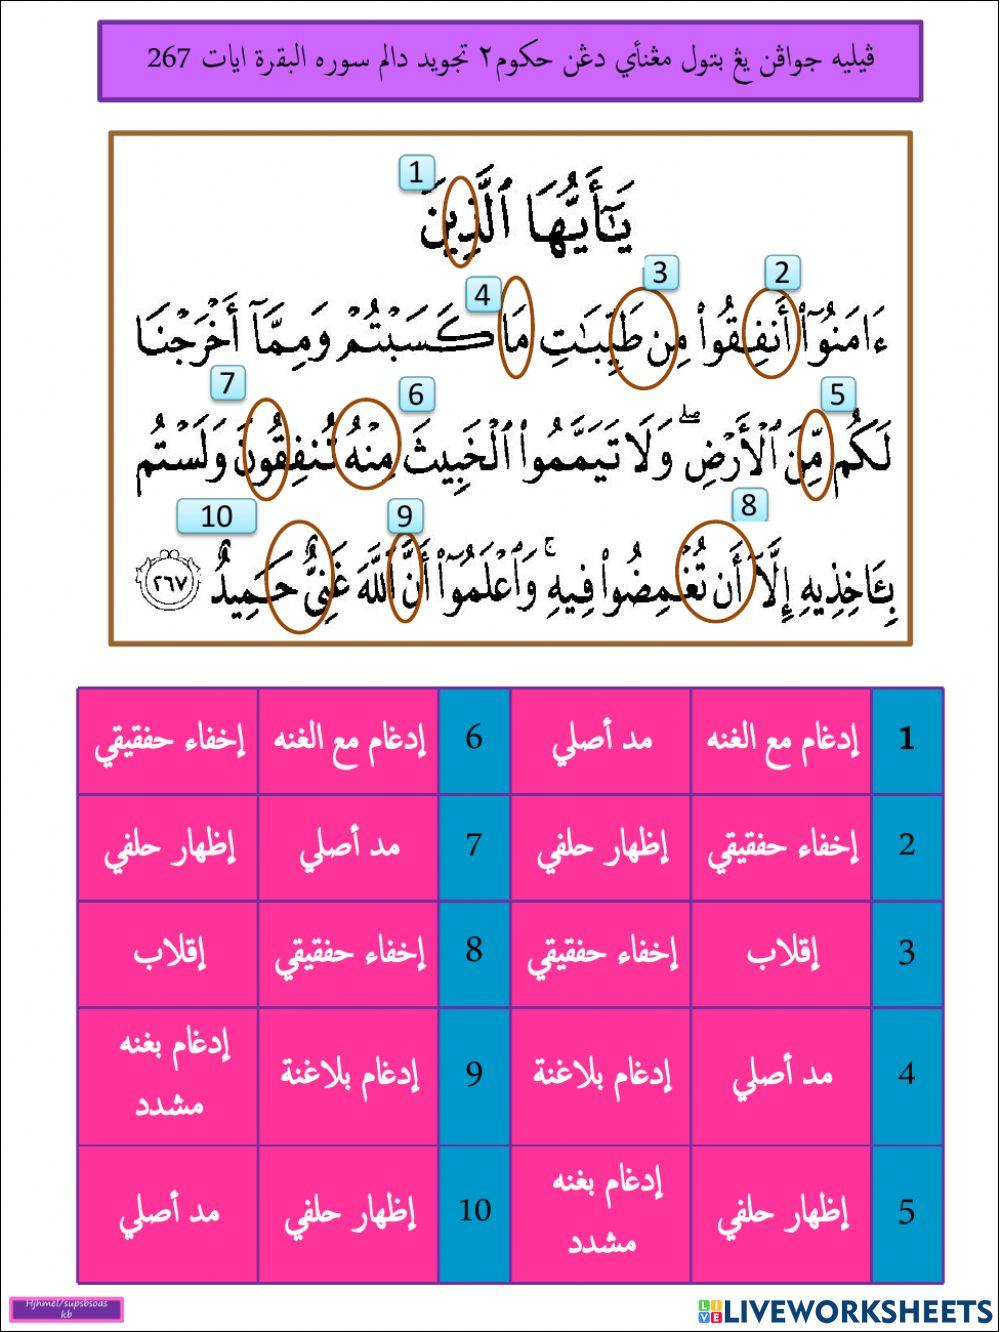 ڤيليه جواڤن يڠ بتول مڠنأي دڠن حكوم٢ تجويد دالم سوره البقرة ايات 267
1
يَـٰٓأَيُّهَا ٱلَّذِينَ
4 3 2
ءَامَنُوٓا۟ أَنفِقُوا۟ مِن طَيِّبَـٰتِ مَا كَسَبْتُمْ وَمِمَّآ أَخْرَجْنَا
7 6 5
لَكُم مِّنَ ٱلْأَرْضِ ۖ وَلَا تَيَمَّمُوا۟ ٱلْخَبِيثَ مِنْهُ تُنفِقُونَ وَلَسْتُم
10 9 8
بِـَٔاخِذِيهِ إِلَّآ أَن تُغْمِضُوا۟ فِيهِ ۚ وَٱعْلَمُوٓا۟ أَنَّ ٱللَّهَ غَنِىٌّ حَمِيدٌ ٢٦٧
1 إدغام مع الغنه مد أصلي 6 إدغام مع الغنه إخفاء حفقيقي
2 إخفاء حفقيقي إظهار حلفي 7 مد أصلي إظهار حلفي
3 إقلاب إخفاء حفقيقي 8 إخفاء حفقيقي إقلاب
4 مد أصلي إدغام بلاغنة 9 إدغام بلاغنة إدغام بغنه
مشدد
5 إظهار حلفي إدغام بغنه
مشدد
10 إظهار حلفي مد أصلي
Hjhmel/supsbsoas
kb
LIVE LIVEWORKSHEETS